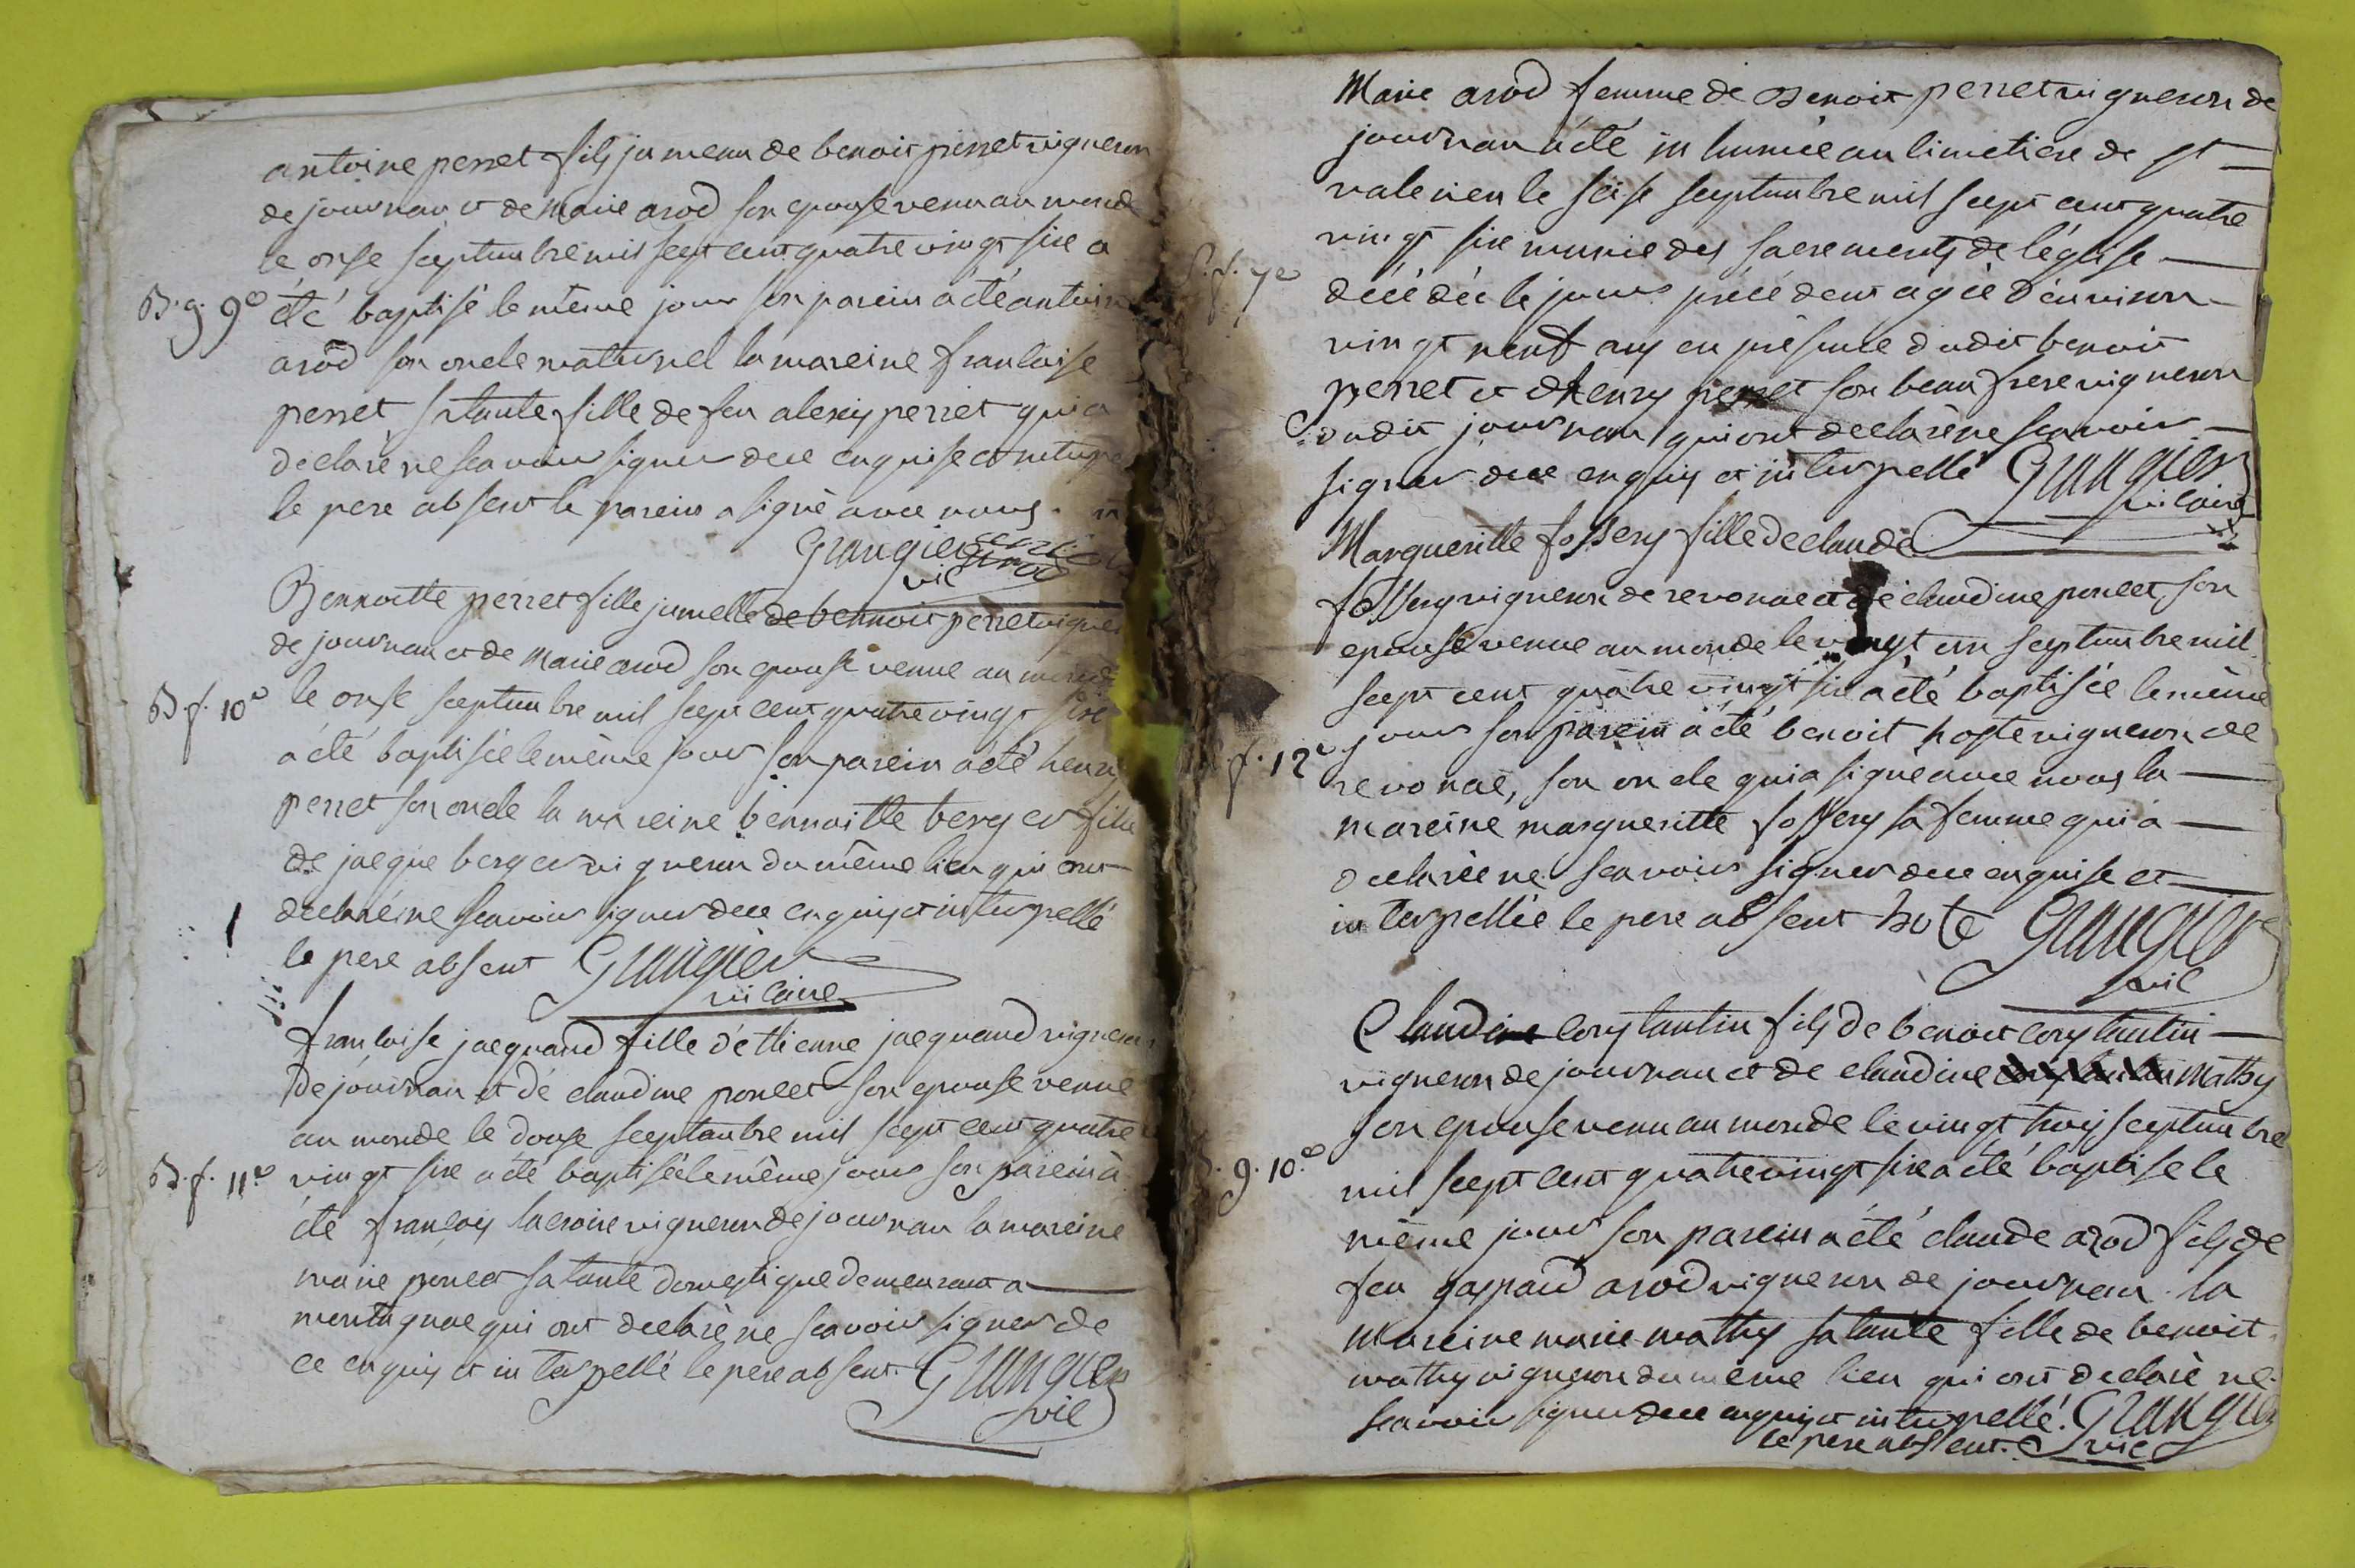 antoine perret fils jumeau de benoit perret vigneron
de journau et de Marie arod son epouse venu au monde
le onse septembre mil sept cent quatre vingt six a
B. g. 9e été baptisé le même jour son parein a été antoine
arod son oncle maternel la mareine francoise
perret sa tante fille de feu alexis perret qui a
declaré ne scavoir signer de ce enquise et
le pere absent le parein a signé avec nous.
Grangier arod
vic
Bennoitte perret fille jumelle de bennoit perret vigneron
de journau et de Marie arod son epouse venue au monde
B f. 10e le onse septembre mil sept cent quatre vingt six
a été baptisée le même jour son parein a été henry
perret son oncle la mareine bennoitte berger fille
de jacque berger vigneron du même lieu qui ont
declaré ne scavoir signer de ce enquis et interpellé
le pere absent Grangier
vicaire
francoise jacquand fille d'étienne jacquand vigneron
de journau et de claudine poncet son epouse venue
au monde le douse septembre mil sept cent quatre
B. f. 11e vingt six a été baptisée le même jour son parein a
été françois lacroix vigneron de journau la mareine
marie poncet sa tante domestique demeurant a
montagnac qui ont declaré ne scavoir signer de
ce enquis et interpellé le pere absent. Grangier
vic
Marie arod femme de Benoit perret vigneron de
journau a été inhumée au cimetiere de st
valerien le seise septembre mil sept cent quatre
vingt six munie des sacrements de l'église
S. f. 7e décédée le jour précédent agée d'environ
vingt neuf ans en présence dudit benoit
perret et d'henry perret son beau frere vigneron
dudit journau qui ont declaré ne scavoir
signer de ce enquis et interpellé Grangier
vicaire
Margueritte fossery fille de claude
fossery vigneron de revonae et de claudine poncet son
epouse venue au monde le vingt un septembre mil
sept cent quatre vingt six a été baptisée le même
jour son parein a été benoit hoste vigneron de
f. 12e revonae, son oncle qui a signé avec nous la
mareine margueritte fossery sa femme qui a
declarée ne scavoir signer de ce enquise et
interpellée le pere absent hote Grangier
vic
Claudine constantin fils de benoit constantin
vigneron de journau et de claudine mathy
son epouse venu au monde le vingt trois septembre
B. g. 10e mil sept cent quatre vingt six a été baptisé le
même jour son parein a été claude arod fils de
feu gaspard arod vigneron de journau la
mareine marie mathy sa tante fille de benoit
mathy vigneron du même lieu qui ont declaré ne
scavoir signer de ce enquis et interpellé. Grangier
le pere absent. vic